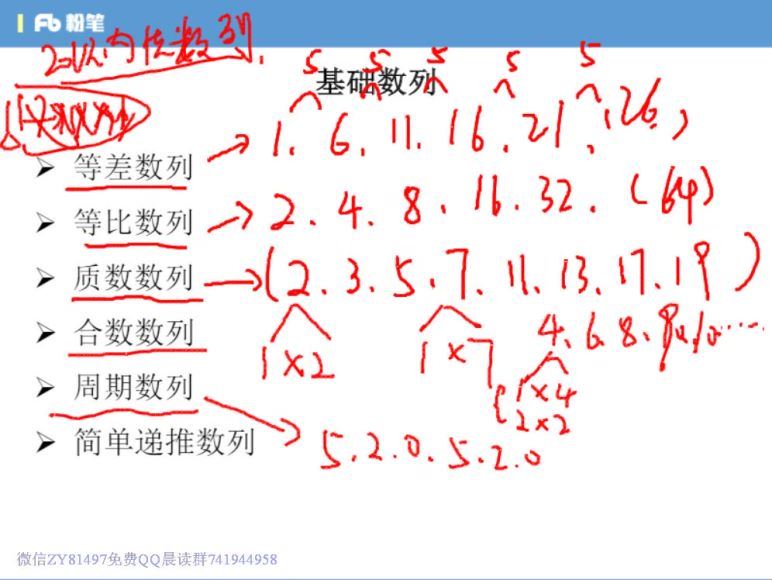 粉笔
20以内质数列
5 5 5 5 5
基础数列
等差数列 1. 6. 11. 16. 21. 26.
等比数列 2. 4. 8. 16. 32. (64)
质数数列 (2. 3. 5. 7. 11. 13. 17. 19)
合数数列 4. 6. 8. 9. 10. ......
1×2 1×7 1×4
2×2
周期数列
简单递推数列 5. 2. 0. 5. 2. 0
微信ZY81497免费QQ晨读群741944958